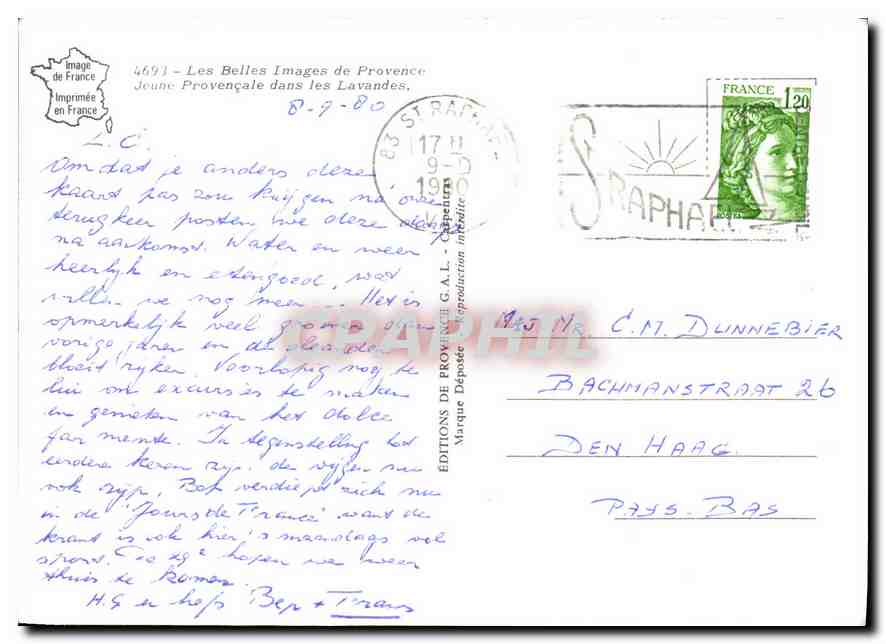 Image
de France
Imprimée
en France
4693 - Les Belles Images de Provence
Jeune Provençale dans les Lavandes.
8-9-80
L.C.
Omdat je anders deze
kaart pas zou krijgen na onze
terugkeer posten we deze
na aankomst. Water en weer
heerlijk en etengoed, wat
willen we nog meer... Het is
opmerkelijk veel groener dan
vorige jaren en de oleander
bloeit rijker. Voorlopig nog te
lui om excursies te maken
en genieten van het dolce
far niente. In tegenstelling tot
eerdere keren zijn de vijgen nu
ook rijp. Bep verdiept zich nu
in de 'Jours de France' want de
krant is ook hier 's maandags vol
sport. hopen we weer
thuis te komen.
H.G en Bep + Frans
83 ST RAPHAEL
17 H
9-
1980
VAR
ST RAPHAEL
FRANCE
1,20
ÉDITIONS DE PROVENCE G.A.L. - Carpentras
Marque Déposée - Reproduction interdite
CPAPHIL
Mr. C.M. DUNNEBIER
BACHMANSTRAAT 26
DEN HAAG.
PAYS-BAS